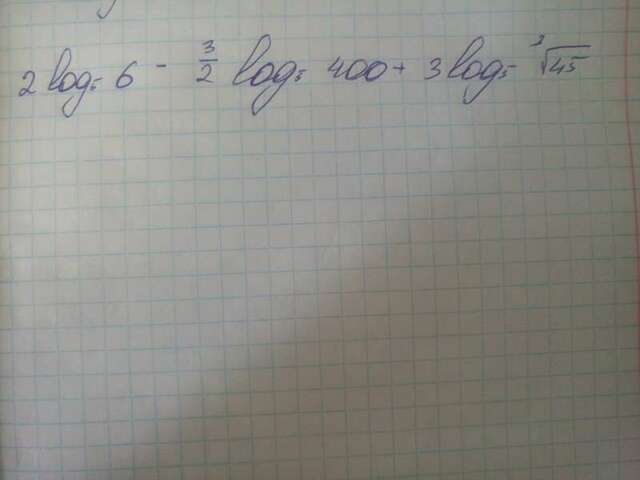 2 log₅ 6 - 3/2 log₅ 400 + 3 log₅ ∛45